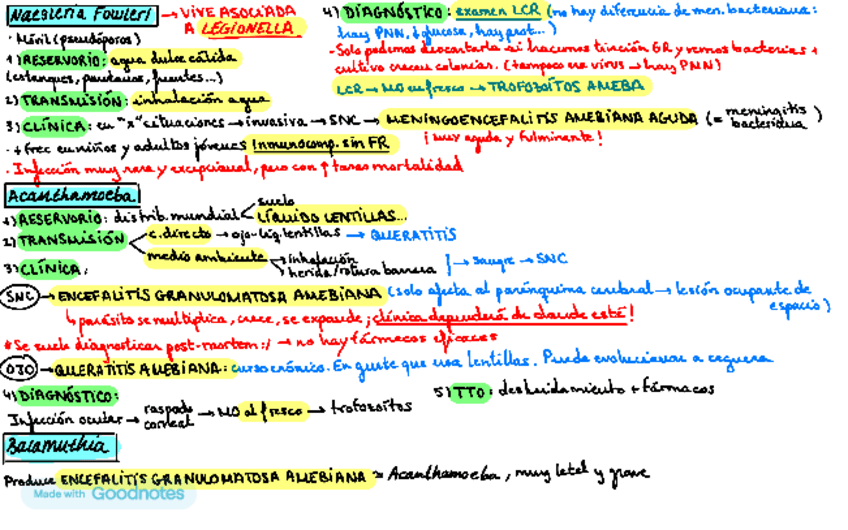 Naegleria Fowleri → VIVE ASOCIADA A LEGIONELLA
· Móvil (pseudóporos)
1) RESERVORIO: agua dulce cálida
(estanques, pantanos, fuentes...)
2) TRANSMISIÓN: inhalación agua
3) CLÍNICA: en "x" situaciones → invasiva → SNC → MENINGOENCEFALITIS AMEBIANA AGUDA (= meningitis bacteriana)
¡muy aguda y fulminante!
· + frec en niños y adultos jóvenes Inmunocomp. sin FR
· Infección muy rara y excepcional, pero con ↑ tasas mortalidad
4) DIAGNÓSTICO: examen LCR (no hay diferencia de men. bacteriana:
hay PNN, ↓glucosa, hay prot...)
- Solo podemos descartarla si hacemos tinción GR y vemos bacterias +
cultivo crecen colonias. (tampoco es virus → hay PNN)
LCR → MO en fresco → TROFOZOÍTOS AMEBA
Acanthamoeba
1) RESERVORIO: distrib. mundial suelo
LÍQUIDO LENTILLAS...
2) TRANSMISIÓN c. directo → ojo-líq. lentillas → QUERATITIS
medio ambiente → inhalación
herida/rotura barrera → sangre → SNC
3) CLÍNICA:
SNC → ENCEFALITIS GRANULOMATOSA AMEBIANA (solo afecta al parénquima cerebral → lesión ocupante de espacio)
↳ parásito se multiplica, crece, se expande ¡clínica dependerá de donde esté!
* Se suele diagnosticar post-mortem :/ → no hay fármacos eficaces
OJO → QUERATITIS AMEBIANA: curso crónico. En gente que usa lentillas. Puede evolucionar a ceguera
4) DIAGNÓSTICO:
Infección ocular → raspado corneal → MO al fresco → trofozoítos
5) TTO: desbridamiento + fármacos
Balamuthia
Produce ENCEFALITIS GRANULOMATOSA AMEBIANA = Acanthamoeba, muy letal y grave
Made with Goodnotes